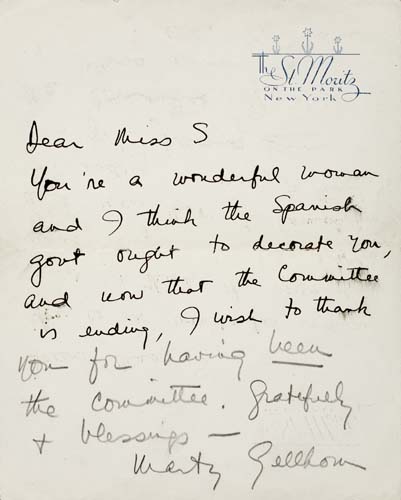 The St Moritz
ON THE PARK
New York
Dear Miss S
You're a wonderful woman
and I think the Spanish
govt ought to decorate you,
and now that the Committee
is ending, I wish to thank
you for having been
the committee. Gratefully
+ blessings —
Marty Gellhorn